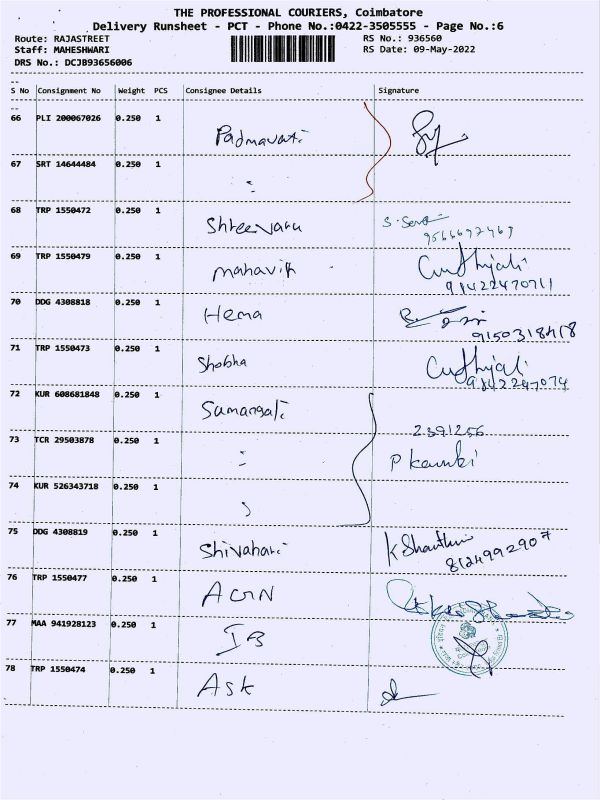 THE PROFESSIONAL COURIERS, Coimbatore
Delivery Runsheet - PCT - Phone No.:0422-3505555 - Page No.:6
Route: RAJASTREET RS No.: 936560
Staff: MAHESHWARI RS Date: 09-May-2022
DRS No.: DCJB93656006
S No Consignment No Weight PCS Consignee Details Signature
66 PLI 200067026 0.250 1 Padmavati
67 SRT 14644484 0.250 1
68 TRP 1550472 0.250 1
9566692469
69 TRP 1550479 0.250 1 mahavir
70 DDG 4308818 0.250 1 Hema
9150318418
71 TRP 1550473 0.250 1 Shobha
72 KUR 608681848 0.250 1
2391256
73 TCR 29503878 0.250 1
74 KUR 526343718 0.250 1
75 DDG 4308819 0.250 1 Shivahari K Shanthi
8124992907
76 TRP 1550477 0.250 1
77 MAA 941928123 0.250 1 IB
78 TRP 1550474 0.250 1 Ask